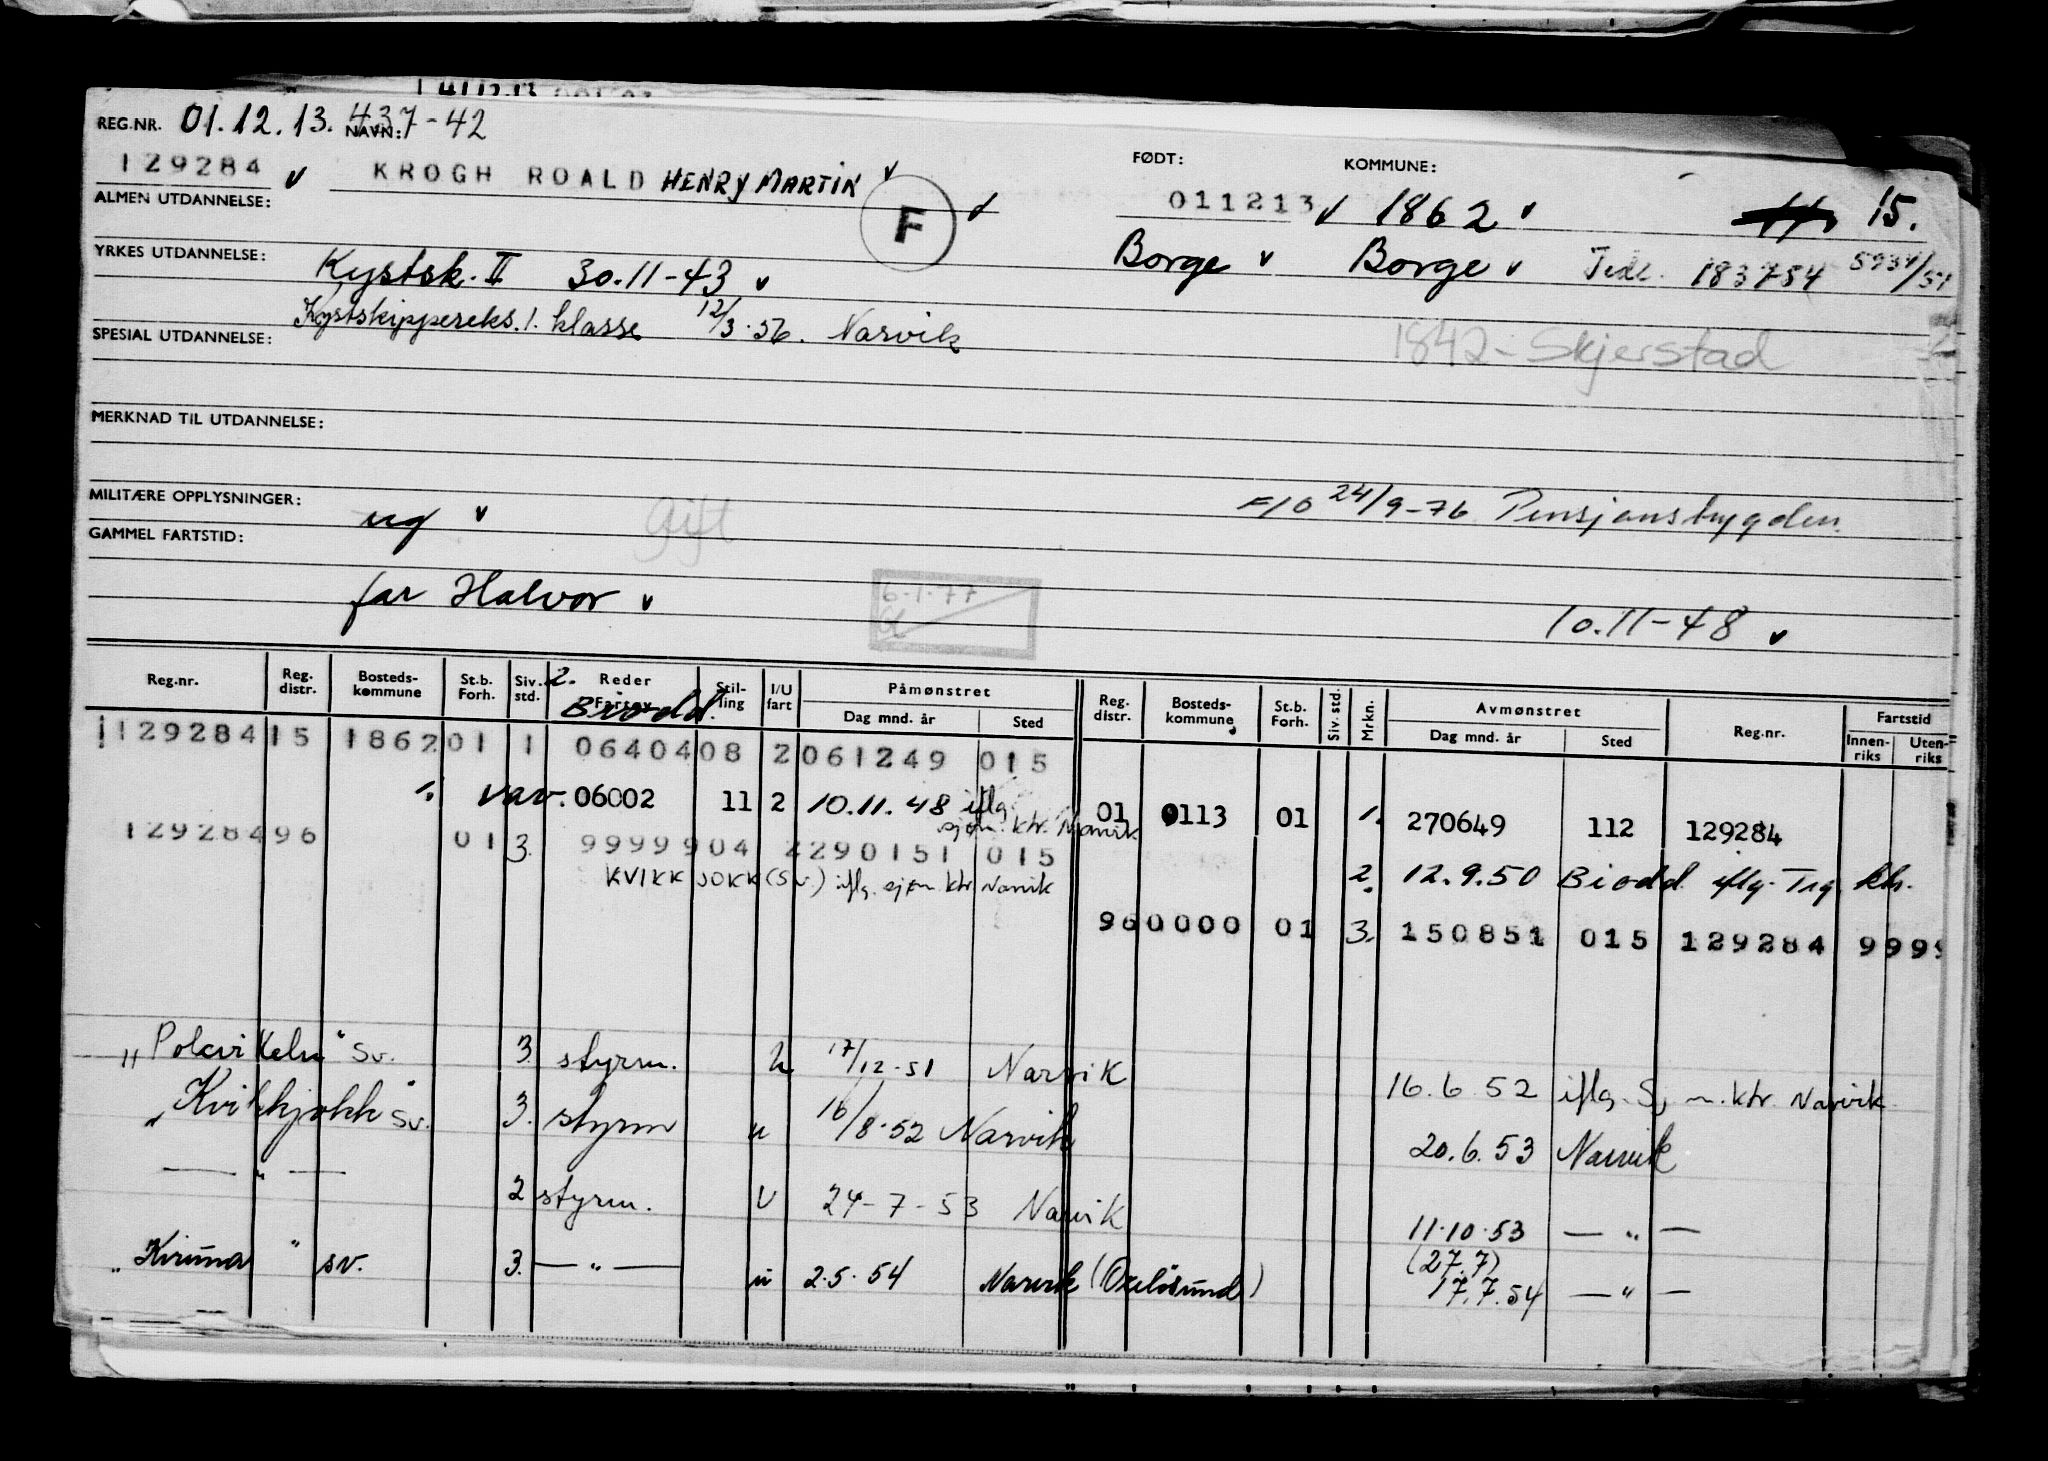 REG.NR. 01.12.13. 437-42 NAVN:
129284 v KROGH ROALD HENRY MARTIN v
F v
FØDT: KOMMUNE:
011213 v 1862 v 15.
ALMEN UTDANNELSE:
Borge v Borge v 183754 5934/51
YRKES UTDANNELSE: Kystsk. II 30.11-43 v
Kystskippereks. 1. klasse 12/3.56. Narvik
1842 - Skjerstad
SPESIAL UTDANNELSE:
MERKNAD TIL UTDANNELSE:
MILITÆRE OPPLYSNINGER: ug v gift
F/O 24/9-76 Pensjonstrygden.
GAMMEL FARTSTID:
far Halvor v
6-1-77
10.11-48 v
Reg.nr. Reg. distr. Bosteds- kommune St.b. Forh. Siv. std. 2. Reder Fartøy Stil- ling I/U fart Påmønstret Dag mnd. år Sted Reg. distr. Bosteds- kommune St.b. Forh. Siv. std. Mrkn. Avmønstret Dag mnd. år Sted Reg.nr. Fartstid Innen- riks Uten- riks
Biodd.
129284 15 1862 01 1 06404 08 2 061249 015
1. var. 06002 11 2 10.11.48 iflg. sjøm. ktr. Narvik 01 0113 01 1. 270649 112 129284
129284 96 01 3. 99999 04 2 290151 015
KVIKKJOKK (Sv.) iflg. sjøm ktr Narvik
2. 12.9.50 Biodd iflg. Trg. kh.
96 0000 01 3. 150851 015 129284 9999
" Sv. 3. styrm. u 17/12-51 Narvik 16.6.52 iflg. Sjm.ktr. Narvik
"Kvikkjokk" Sv. 3. styrm u 16/8-52 Narvik 20.6.53 Narvik
— " — 2 styrm. U 24-7-53 Narvik 11.10.53 — " —
(27.7)
"Kiruna" sv. 3. — " — u 2.5.54 Narvik (Oxeløsund) 17.7.54 — " —